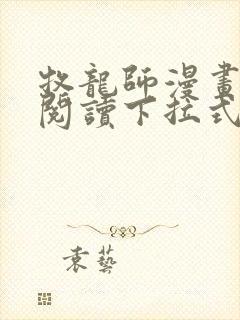 牧龍師漫畫
閱讀下拉式
袁藝